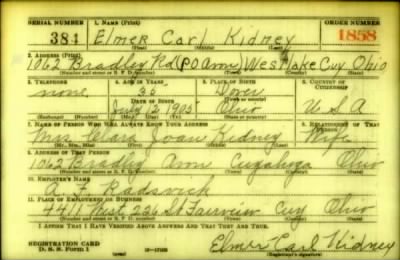 SERIAL NUMBER 1. NAME (Print) ORDER NUMBER
384 Elmer Carl Kidney 1858
(First) (Middle) (Last)
2. ADDRESS (Print)
1062 Bradley Rd (PO Avon) Westlake Cuy Ohio
(Number and street or R. F. D. number) (Town) (County) (State)
3. TELEPHONE 4. AGE IN YEARS 5. PLACE OF BIRTH 6. COUNTRY OF CITIZENSHIP
none 35 Dover
DATE OF BIRTH (Town or county)
July 1905 Ohio U S A
(Exchange) (Number) (Mo.) (Day) (Yr.) (State or country)
7. NAME OF PERSON WHO WILL ALWAYS KNOW YOUR ADDRESS 8. RELATIONSHIP OF THAT PERSON
Mrs Clara Joan Kidney Wife
(Mr., Mrs., Miss) (First) (Middle) (Last)
9. ADDRESS OF THAT PERSON
1062 Bradley Avon Cuyahoga Ohio
(Number and street or R. F. D. number) (Town) (County) (State)
10. EMPLOYER'S NAME
A. F.
11. PLACE OF EMPLOYMENT OR BUSINESS
4411 West 226 St Fairview Cuy Ohio
(Number and street or R. F. D. number) (Town) (County) (State)
I AFFIRM THAT I HAVE VERIFIED ABOVE ANSWERS AND THAT THEY ARE TRUE.
REGISTRATION CARD
D. S. S. Form 1 Elmer Carl Kidney
(Registrant's signature)